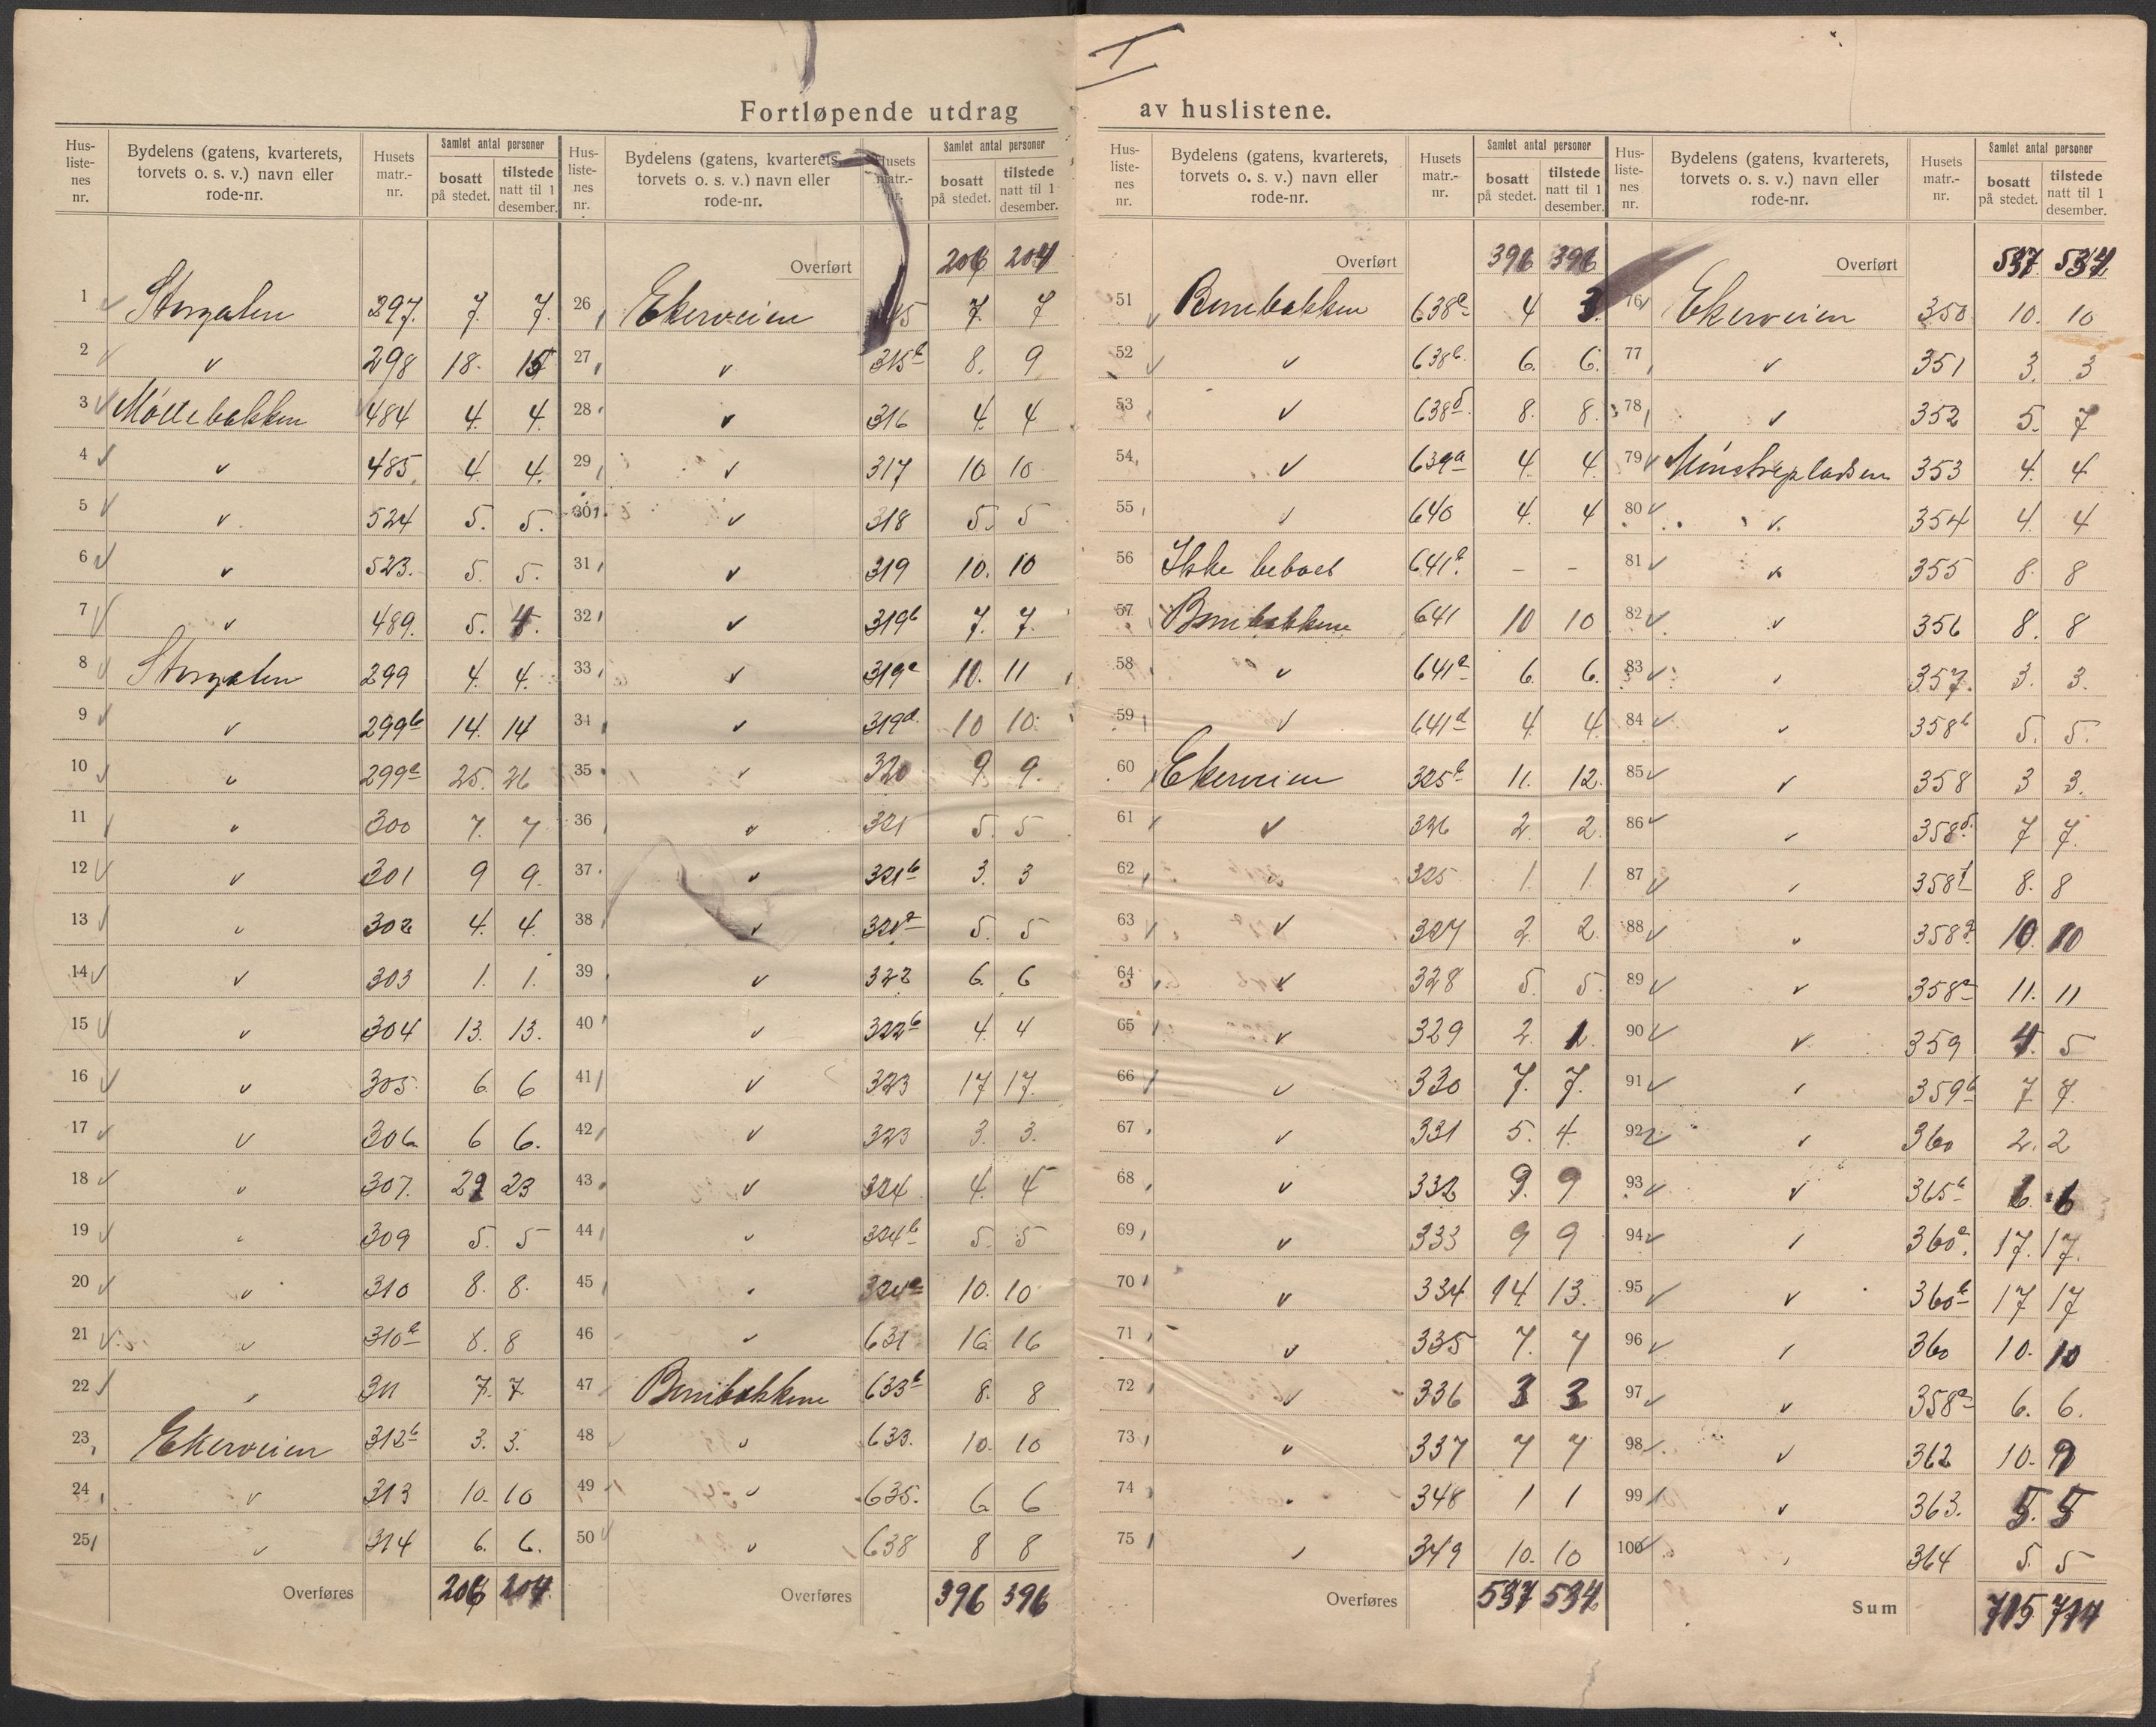 I
Fortløpende utdrag av huslistene.
Hus-liste-nes nr. Bydelens (gatens, kvarterets, torvets o. s. v.) navn eller rode-nr. Husets matr.-nr. Samlet antal personer bosatt på stedet. tilstede natt til 1 desember.
1 Storgaten 297. 7. 7.
2 v 298 18. 15
3 Møllebakken 484 4. 4.
4 v 485. 4. 4.
5 v 524 5. 5.
6 v 523. 5. 5.
7 v 489. 5. 4.
8 Storgaten 299 4. 4.
9 v 299b 14. 14
10 v 299c 25. 26
11 v 300 7. 7
12 v 301 9 9.
13 v 302 4. 4.
14 v 303 1. 1.
15 v 304 13. 13.
16 v 305. 6. 6
17 v 306 6 6.
18 v 307. 23
19 v 309 5. 5
20 v 310 8. 8.
21 v 310b 8. 8
22 v 311 7. 7.
23 Ekerveien 312b 3. 3.
24 v 313 10. 10
25 v 314 6. 6.
Overføres 206 204
Hus-liste-nes nr. Bydelens (gatens, kvarterets, torvets o. s. v.) navn eller rode-nr. Husets matr.-nr. Samlet antal personer bosatt på stedet. tilstede natt til 1 desember.
Overført 206 204
26 Ekerveien 7. 7
27 v 315b 8. 9
28 v 316 4. 4
29 v 317 10 10
30 v 318 5. 5
31 v 319 10. 10
32 v 319b 7. 7.
33 v 319c 10. 11
34 v 319d 10 10.
35 v 320 9 9.
36 v 321 5. 5
37 v 321b 3. 3
38 v 5. 5
39 v 322 6. 6
40 v 322b 4. 4
41 v 323 17 17.
42 v 323 3. 3.
43 v 324 4. 4
44 v 324b 5. 5
45 v 324c 10. 10
46 v 631 16 16
47 Bernebakkene 633b 8. 8
48 v 633. 10. 10
49 v 635. 6 6
50 v 638 8 8
Overføres 396 396
Hus-liste-nes nr. Bydelens (gatens, kvarterets, torvets o. s. v.) navn eller rode-nr. Husets matr.-nr. Samlet antal personer bosatt på stedet. tilstede natt til 1 desember.
Overført 396 396
51 Bernebakken 638c 4 3.
52 v 638b. 6. 6.
53 v 638d. 8. 8.
54 v 639a 4. 4.
55 v 640 4. 4
56 Ikke beboet 641b. – –
57 Bernebakkene 641 10 10
58 v 641c 6. 6.
59 v 641d 4. 4.
60 Ekerveien 325b 11. 12.
61 v 326 2. 2.
62 v 325 1. 1
63 v 327 2. 2.
64 v 328 5. 5.
65 v 329 2. 1.
66 v 330 7. 7.
67 v 331 5. 4.
68 v 332 9. 9
69 v 333 9 9
70 v 334 14. 13.
71 v 335 7. 7
72 v 336 3 3
73 v 337 7 7
74 v 348 1 1
75 v 349 10. 10
Overføres 537 534
Hus-liste-nes nr. Bydelens (gatens, kvarterets, torvets o. s. v.) navn eller rode-nr. Husets matr.-nr. Samlet antal personer bosatt på stedet. tilstede natt til 1 desember.
Overført 537 534
76 Ekerveien 350. 10. 10
77 v 351 3. 3
78 v 352 5. 7
79 353 4. 4
80 v. 354 4. 4
81 v 355 8. 8
82 v 356 8. 8
83 v 357. 3. 3.
84 v 358b 5. 5.
85 v 358 3 3.
86 v 358d. 7 7.
87 v 358f 8. 8
88 v 358g. 10. 10
89 v 11. 11
90 v 359 4. 5
91 v 359b 7. 7.
92 v 360 2. 2
93 v 365b 6. 6
94 v 17. 17.
95 v 360b 17 17
96 v 360 10. 10
97 v 6. 6.
98 v 362 10. 9
99 v 363. 5. 5
100 v 364 5. 5
Sum 715 714